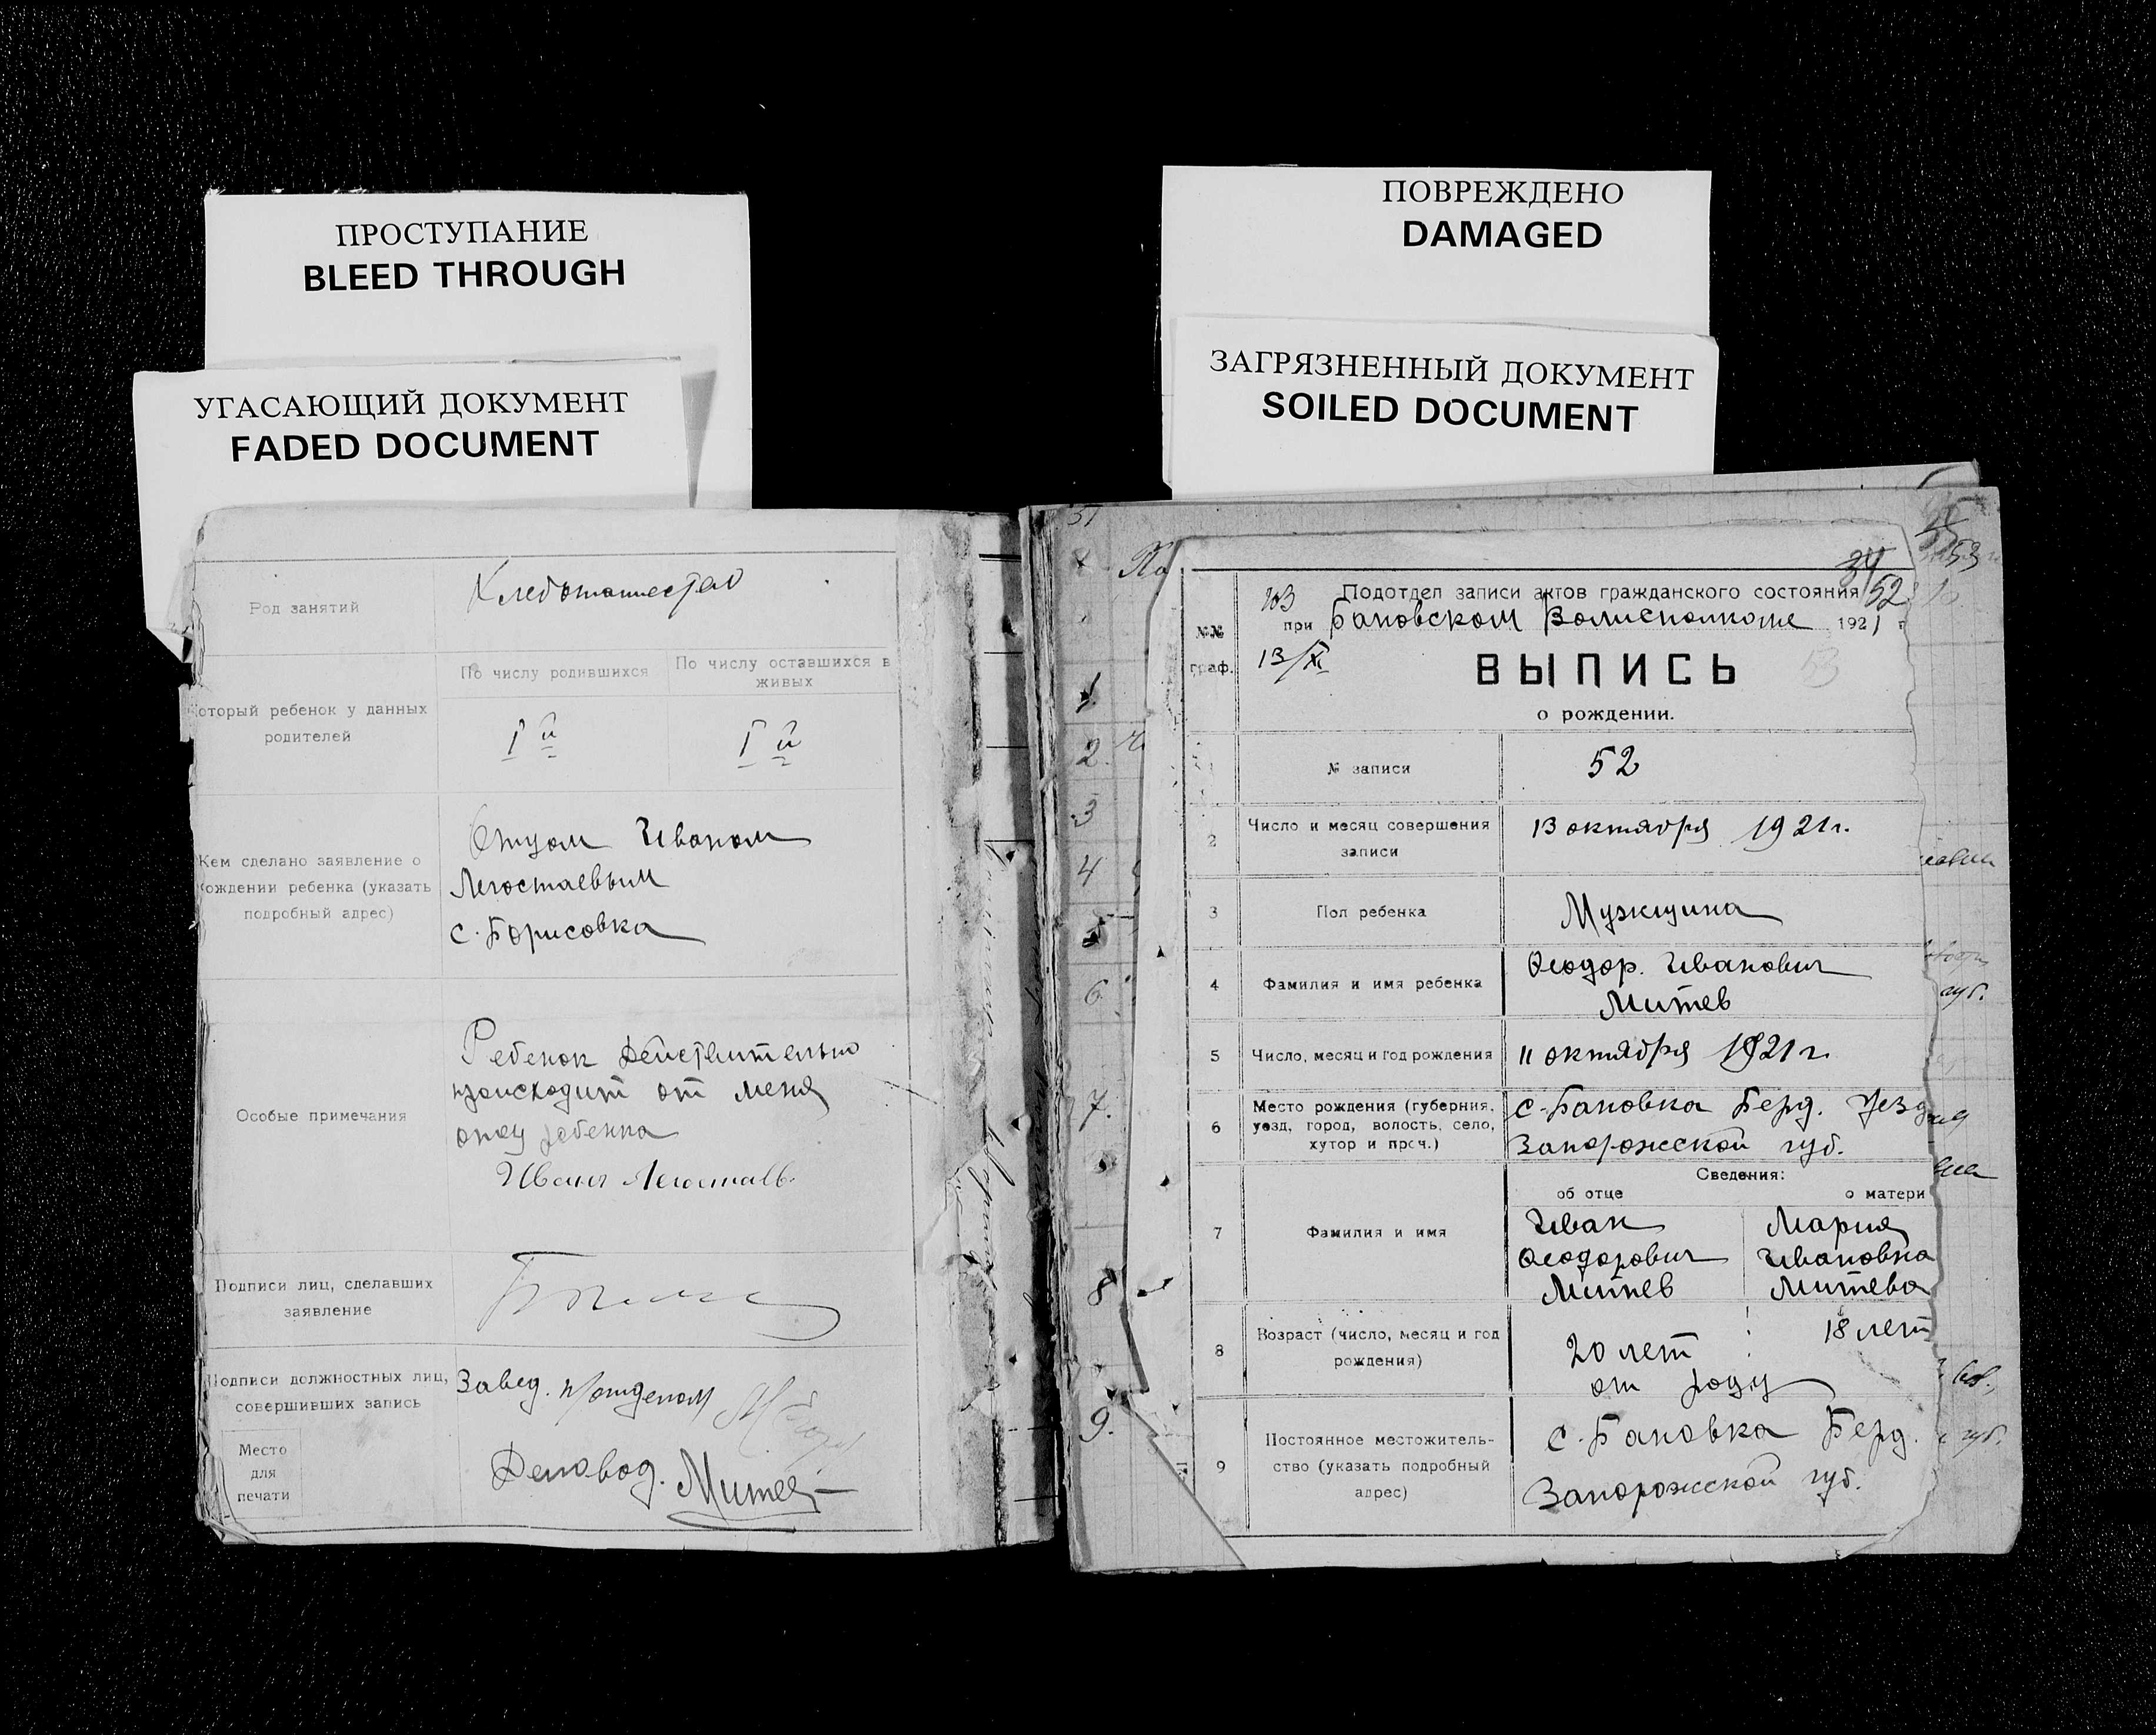 ПРОСТУПАНИЕ
BLEED THROUGH
УГАСАЮЩИЙ ДОКУМЕНТ
FADED DOCUMENT
Род занятий
Хлебопашество
Который ребенок у данных
родителей
По числу родившихся
По числу оставшихся в
живых
I й
I й
Кем сделано заявление о
рождении ребенка (указать
подробный адрес)
Отцом Иваном
Легостаевым
с. Борисовка
Особые примечания
Ребенок действительно
происходит от меня
отец ребенка
Иван Легостаев
Подписи лиц, сделавших
заявление
Подписи должностных лиц,
совершивших запись
Завед. п/отделом
Деловод. Митев
Место
для
печати
ПОВРЕЖДЕНО
DAMAGED
ЗАГРЯЗНЕННЫЙ ДОКУМЕНТ
SOILED DOCUMENT
53
34
52
№№
граф.
103 Подотдел записи актов гражданского состояния
при Бановском Волисполкоме 1921 г
13/XI
ВЫПИСЬ
53
о рождении.
№ записи
52
2 Число и месяц совершения
записи
13 октября 1921 г.
3 Пол ребенка
Мужщина
4 Фамилия и имя ребенка
Феодор. Иванович
Митев
5 Число, месяц и год рождения
11 октября 1921 г.
6 Место рождения (губерния,
уезд, город, волость, село,
хутор и проч.)
с. Бановка Берд. Уезд
Запорожской губ.
Сведения:
об отце
о матери
7 Фамилия и имя
Иван
Феодорович
Митев
Мария
Ивановна
Митева
8 Возраст (число, месяц и год
рождения)
20 лет
от роду
18 лет
9 Постоянное местожитель-
ство (указать подробный
адрес)
с. Бановка Берд.
Запорожской губ.
51
1.
2.
3
4
5
6
7.
8
9.
губ.
губ.